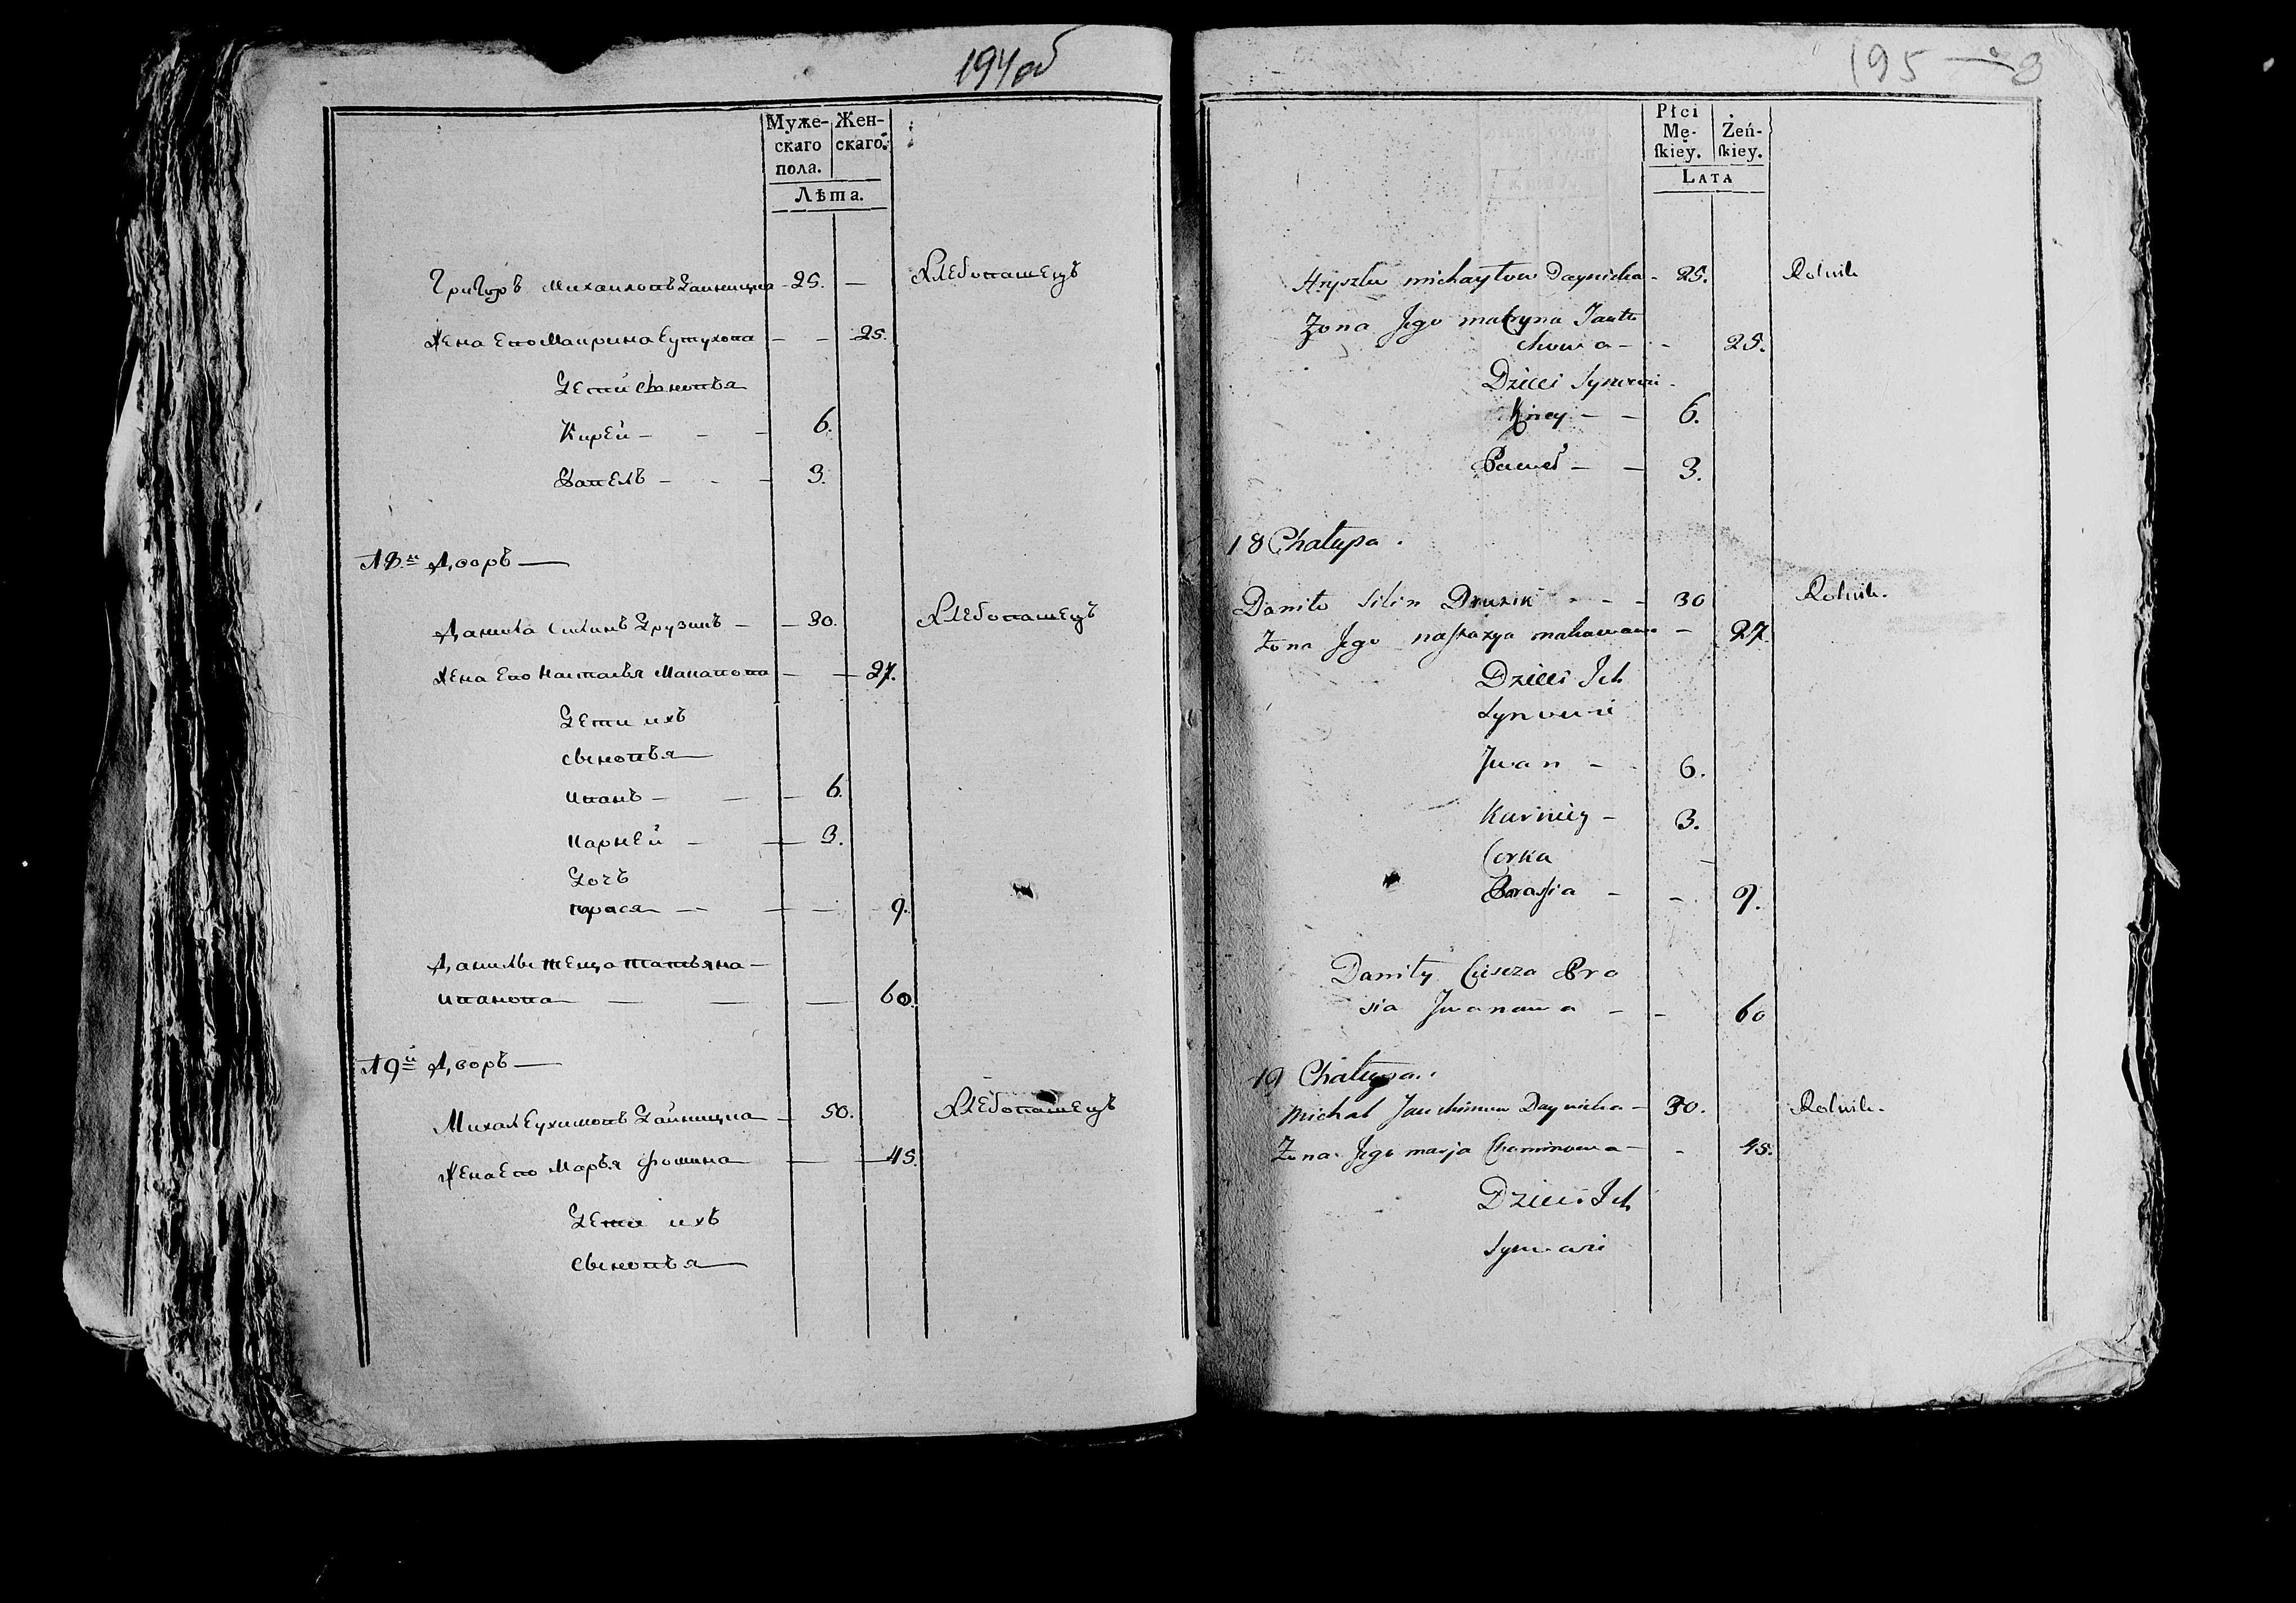 194об
Муже-
скаго
пола.
Жен-
скаго.
Лѣта.
Григоръ Михаиловъ Дайница - 25. — Хлебопашецъ
Жена Его Маврина Евтухова - - 25.
Дети сыновья
Кирей - - - 6.
Павелъ - - - 3.
18й Дворъ —
Данила Силинъ Друзикъ - - 30. Хлебопашецъ
Жена Его Настасья Макаво - — 27.
Дети ихъ
сыновья
Иванъ - — - 6.
Карней - — 3.
Дочь
Прася — - — - 9.
Данилы теща Татьяна —
Иванова — — — 60.
19й Дворъ —
Михал Еухимовъ Дайница - 50. Хлебопашецъ
Жена Его Марья Фомина — — 45.
Дети ихъ
сыновья
195
Płci
Mę-
ſkiey.
Żeń-
ſkiey.
LATA
Hryszko michayłow Daynicka - 25. Rolnik
Żona Jego matryna Jautu
chowa - - 25.
Dzieci Synowie -
Kirey - - 6.
Paweł - - 3.
18 Chałupa.
Daniło Silin Druzik - - - 30 Rolnik.
Żona Jego naſtazya makawowa - 27.
Dzieci Ich
Synowie
Jwan - 6.
Karniey - 3.
Corka
Praſsia - - 9.
Daniły Ciescza Pra
sia Jwanowa - - 60
19 Chałupa.
Michał Jauchimow Daynicka - 50. Rolnik.
Żona Jego marja Chominowa - - 45.
Dzieci Ich
Synowie